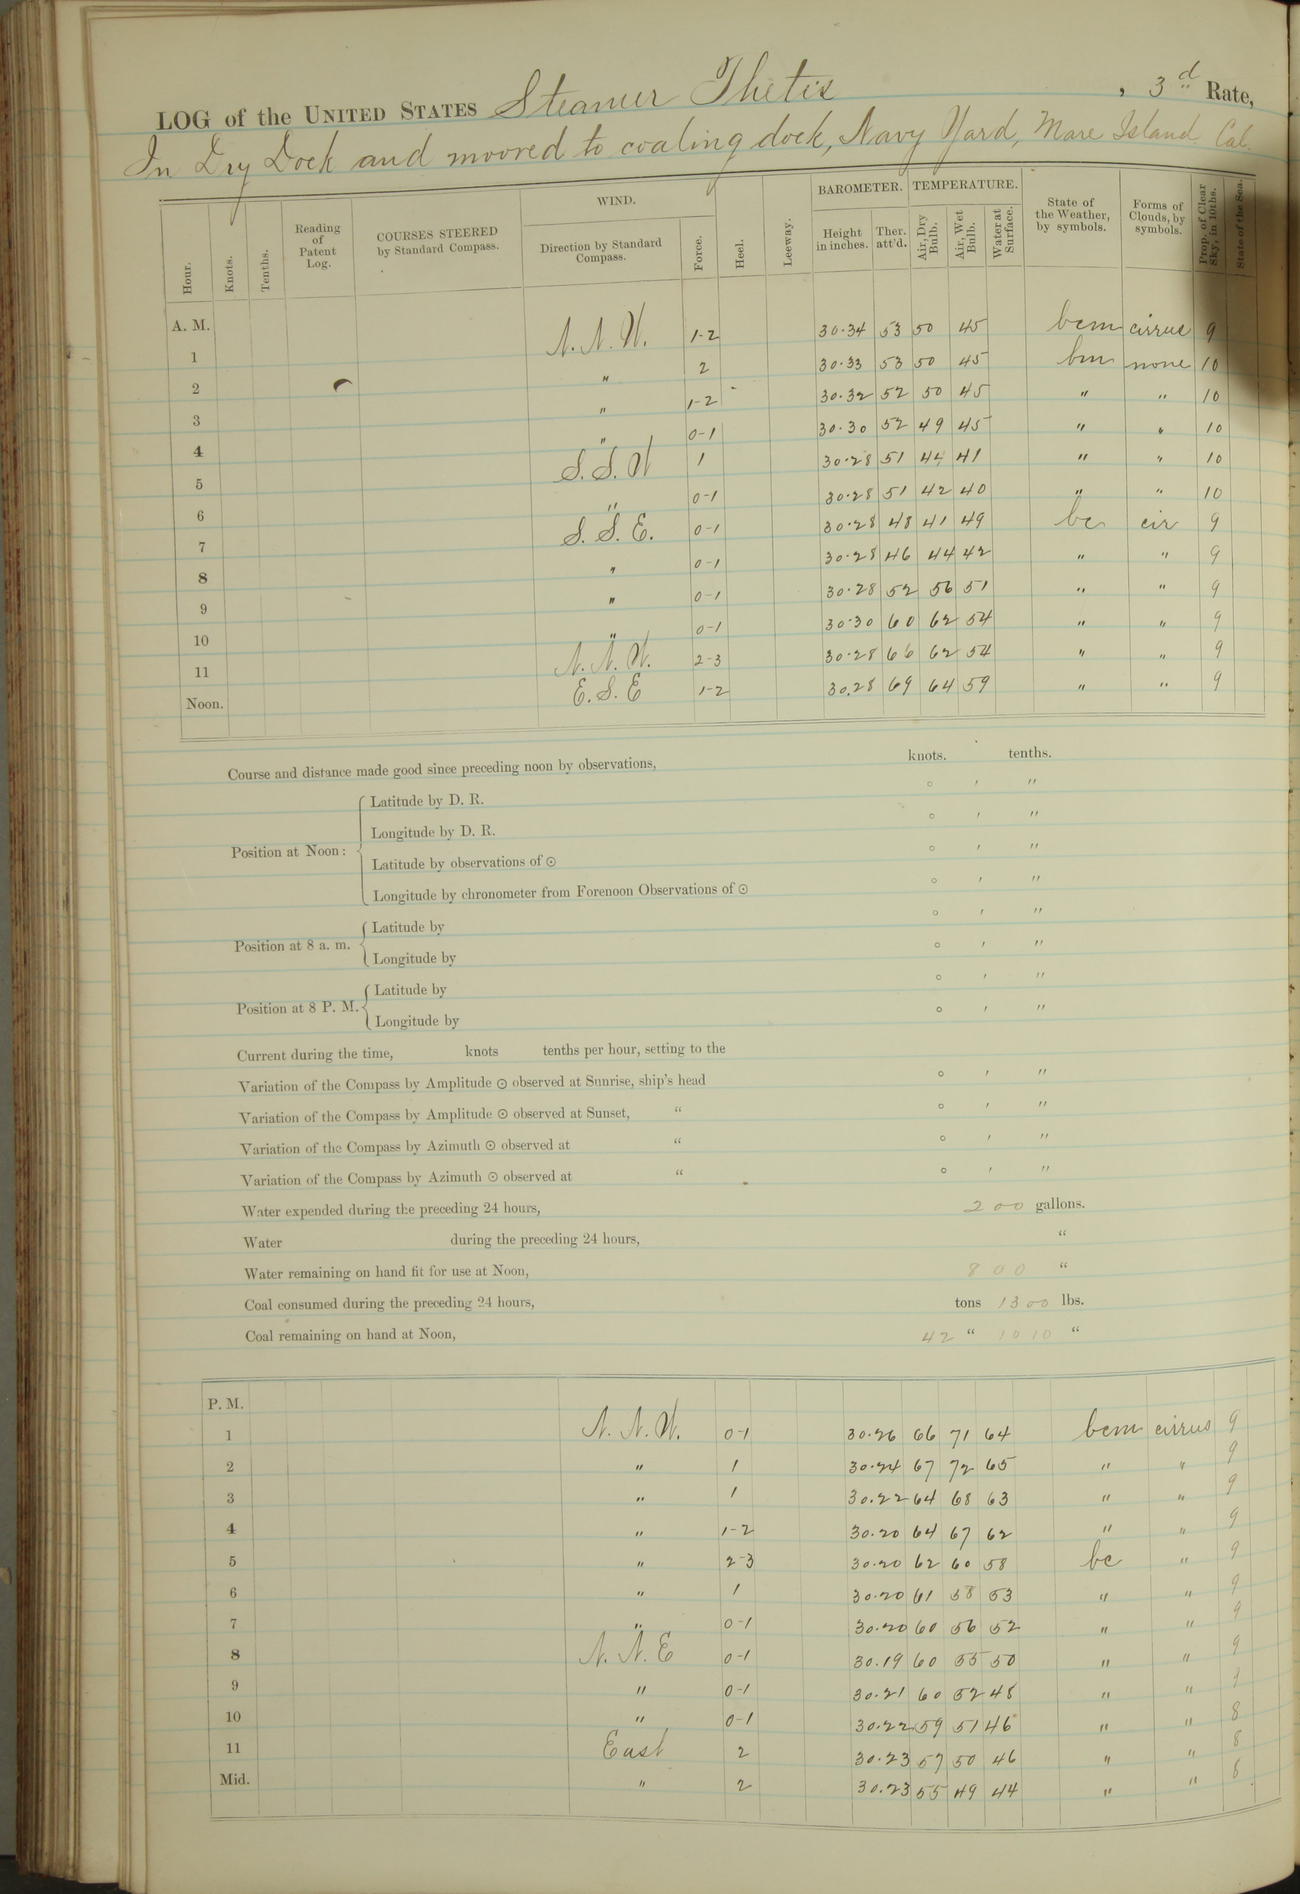 LOG of the UNITED STATES Steamer Thetis, 3d Rate,
In Dry Dock and moored to coaling dock, Navy Yard, Mare Island Cal.
Hour. Knots. Tenths. Reading of Patent Log. COURSES STEERED by Standard Compass. WIND. Direction by Standard Compass. Force. Heel. Leeway. BAROMETER. Height in inches. Ther. att'd. TEMPERATURE. Air, Dry Bulb. Air, Wet Bulb. Water at Surface. State of the Weather, by symbols. Forms of Clouds, by symbols. Prop. of Clear Sky, in 10ths. State of the Sea.
A. M.
1 N. N. W. 1-2 30.34 53 50 45 bcm cirrus 9
2 " 2 30.33 53 50 45 bm none 10
3 " 1-2 30.32 52 50 45 " " 10
4 " 0-1 30.30 52 49 45 " " 10
5 S. S. W 1 30.28 51 44 41 " " 10
6 " 0-1 30.28 51 42 40 " " 10
7 S. S. E. 0-1 30.28 48 41 49 bc cir 9
8 " 0-1 30.28 46 44 42 " " 9
9 " 0-1 30.28 52 56 51 " " 9
10 " 0-1 30.30 60 62 54 " " 9
11 N. N. W. 2-3 30.28 66 62 54 " " 9
Noon. E. S. E 1-2 30.28 69 64 59 " " 9
Course and distance made good since preceding noon by observations, knots. tenths.
Position at Noon:
Latitude by D. R. ° ′ ″
Longitude by D. R. ° ′ ″
Latitude by observations of ⊙ ° ′ ″
Longitude by chronometer from Forenoon Observations of ⊙ ° ′ ″
Position at 8 a. m.
Latitude by ° ′ ″
Longitude by ° ′ ″
Position at 8 P. M.
Latitude by ° ′ ″
Longitude by ° ′ ″
Current during the time, knots tenths per hour, setting to the
Variation of the Compass by Amplitude ⊙ observed at Sunrise, ship's head ° ′ ″
Variation of the Compass by Amplitude ⊙ observed at Sunset, " ° ′ ″
Variation of the Compass by Azimuth ⊙ observed at " ° ′ ″
Variation of the Compass by Azimuth ⊙ observed at " ° ′ ″
Water expended during the preceding 24 hours, 200 gallons.
Water during the preceding 24 hours, "
Water remaining on hand fit for use at Noon, 800 "
Coal consumed during the preceding 24 hours, tons 1300 lbs.
Coal remaining on hand at Noon, 42 " 1010 "
P. M.
1 N. N. W. 0-1 30.26 66 71 64 bcm cirrus 9
2 " 1 30.24 67 72 65 " " 9
3 " 1 30.22 64 68 63 " " 9
4 " 1-2 30.20 64 67 62 " " 9
5 " 2-3 30.20 62 60 58 bc " 9
6 " 1 30.20 61 58 53 " " 9
7 " 0-1 30.20 60 56 52 " " 9
8 N. N. E 0-1 30.19 60 55 50 " " 9
9 " 0-1 30.21 60 52 48 " " 9
10 " 0-1 30.22 59 51 46 " " 8
11 East 2 30.23 57 50 46 " " 8
Mid. " 2 30.23 55 49 44 " " 8